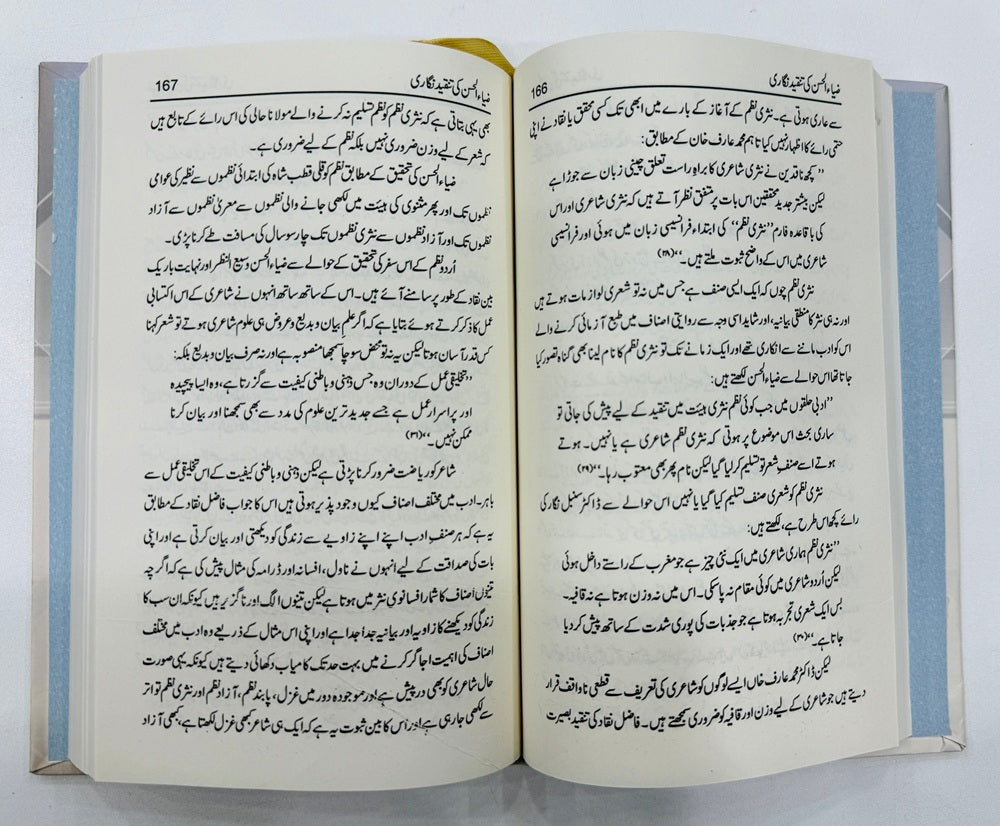 166
ضیاء الحسن کی تنقید نگاری
سے عاری ہوتی ہے۔ نثری نظم کے آغاز کے بارے میں ابھی تک کسی محقق یا نقاد نے اپنی
حتمی رائے کا اظہار نہیں کیا تاہم محمد عارف خان کے مطابق:
’’کچھ ناقدین نے نثری شاعری کا براہِ راست تعلق چینی زبان سے جوڑا ہے
لیکن بیشتر جدید محققین اس بات پر متفق نظر آتے ہیں کہ نثری شاعری اور اس
کی باقاعدہ فارم ’’نثری نظم‘‘ کی ابتداء فرانسیسی زبان میں ہوئی اور فرانسیسی
شاعری میں اس کے واضح ثبوت ملتے ہیں۔‘‘(۲۸)
نثری نظم چوں کہ ایک ایسی صنف ہے جس میں نہ تو شعری لوازمات ہوتے ہیں
اور نہ ہی نثر کا منطقی بیانیہ، اور شاید اسی وجہ سے روایتی اصناف میں طبع آزمائی کرنے والے
اس کو ادب ماننے سے انکاری تھے اور ایک زمانے تک تو نثری نظم کا نام لینا بھی گناہ تصور کیا
جاتا تھا اس حوالے سے ضیاء الحسن لکھتے ہیں:
’’ادبی حلقوں میں جب کوئی نظم نثری ہیئت میں تنقید کے لیے پیش کی جاتی تو
ساری بحث اس موضوع پر ہوتی کہ نثری نظم شاعری ہے یا نہیں۔ ہوتے
ہوتے اسے صنفِ شعر تو تسلیم کر لیا گیا لیکن نام پھر بھی معتوب رہا۔‘‘(۲۹)
نثری نظم کو شعری صنف تسلیم کیا گیا یا نہیں اس حوالے سے ڈاکٹر سنبل نگار کی
رائے کچھ اس طرح ہے، لکھتے ہیں:
’’نثری نظم ہماری شاعری میں ایک نئی چیز ہے جو مغرب کے راستے داخل ہوئی
لیکن اُردو شاعری میں کوئی مقام نہ پا سکی۔ اس میں نہ وزن ہوتا ہے نہ قافیہ۔
بس ایک شعری تجربہ ہوتا ہے جو جذبات کی پوری شدت کے ساتھ پیش کر دیا
جاتا ہے۔‘‘(۳۰)
لیکن ڈاکٹر محمد عارف خاں ایسے لوگوں کو شاعری کی تعریف سے قطعی ناواقف قرار
دیتے ہیں جو شاعری کے لیے وزن اور قافیہ کو ضروری سمجھتے ہیں۔ فاضل نقاد کی تنقید بصیرت
167
ضیاء الحسن کی تنقید نگاری
بھی یہی بتاتی ہے کہ نثری نظم کو نظم تسلیم نہ کرنے والے مولانا حالی کی اس رائے کے تابع ہیں
کہ شعر کے لیے وزن ضروری نہیں بلکہ نظم کے لیے ضروری ہے۔
ضیاء الحسن کی تحقیق کے مطابق نظم کو قلی قطب شاہ کی ابتدائی نظموں سے نظیر کی عوامی
نظموں تک اور پھر مثنوی کی ہیئت میں لکھی جانے والی نظموں سے معریٰ نظموں سے آزاد
نظموں تک اور آزاد نظموں سے نثری نظموں تک چار سو سال کی مسافت طے کرنا پڑی۔
اُردو نظم کے اس سفر کی تحقیق کے حوالے سے ضیاء الحسن وسیع النظر اور نہایت باریک
بین نقاد کے طور پر سامنے آئے ہیں۔ اس کے ساتھ ساتھ انہوں نے شاعری کے اس اکتسابی
عمل کا ذکر کرتے ہوئے بتایا ہے کہ اگر علم بیان و بدیع و عروض ہی علوم شاعری ہوتے تو شعر کہنا
کس قدر آسان ہوتا لیکن یہ نہ تو محض سوچا سمجھا منصوبہ ہے اور نہ صرف بیان و بدیع بلکہ:
’’تخلیقی عمل کے دوران وہ جس ذہنی و باطنی کیفیت سے گزرتا ہے، وہ ایسا پیچیدہ
اور پراسرار عمل ہے جسے جدید ترین علوم کی مدد سے بھی سمجھنا اور بیان کرنا
ممکن نہیں۔‘‘(۳۱)
شاعر کو ریاضت ضرور کرنا پڑتی ہے لیکن ذہنی و باطنی کیفیت کے اس تخلیقی عمل سے
باہر۔ ادب میں مختلف اصناف کیوں وجود پذیر ہوتی ہیں اس کا جواب فاضل نقاد کے مطابق
یہ ہے کہ ہر صنفِ ادب اپنے اپنے زاویے سے زندگی کو دیکھتی اور بیان کرتی ہے اور اپنی
بات کی صداقت کے لیے انہوں نے ناول، افسانہ اور ڈرامہ کی مثال پیش کی ہے کہ اگرچہ
تینوں اصناف کا شمار افسانوی نثر میں ہوتا ہے لیکن تینوں الگ اور ناگزیر ہیں کیونکہ ان سب کا
زندگی کو دیکھنے کا زاویہ اور بیانیہ جدا جدا ہے اور اپنی اس مثال کے ذریعے وہ ادب میں مختلف
اصناف کی اہمیت اجاگر کرنے میں بہت حد تک کامیاب دکھائی دیتے ہیں کیونکہ یہی صورت
حال شاعری کو بھی درپیش ہے اور موجودہ دور میں غزل، پابند نظم، آزاد نظم اور نثری نظم تواتر
سے لکھی جا رہی ہے اور اس کا بین ثبوت یہ ہے کہ ایک ہی شاعر کبھی غزل لکھتا ہے، کبھی آزاد